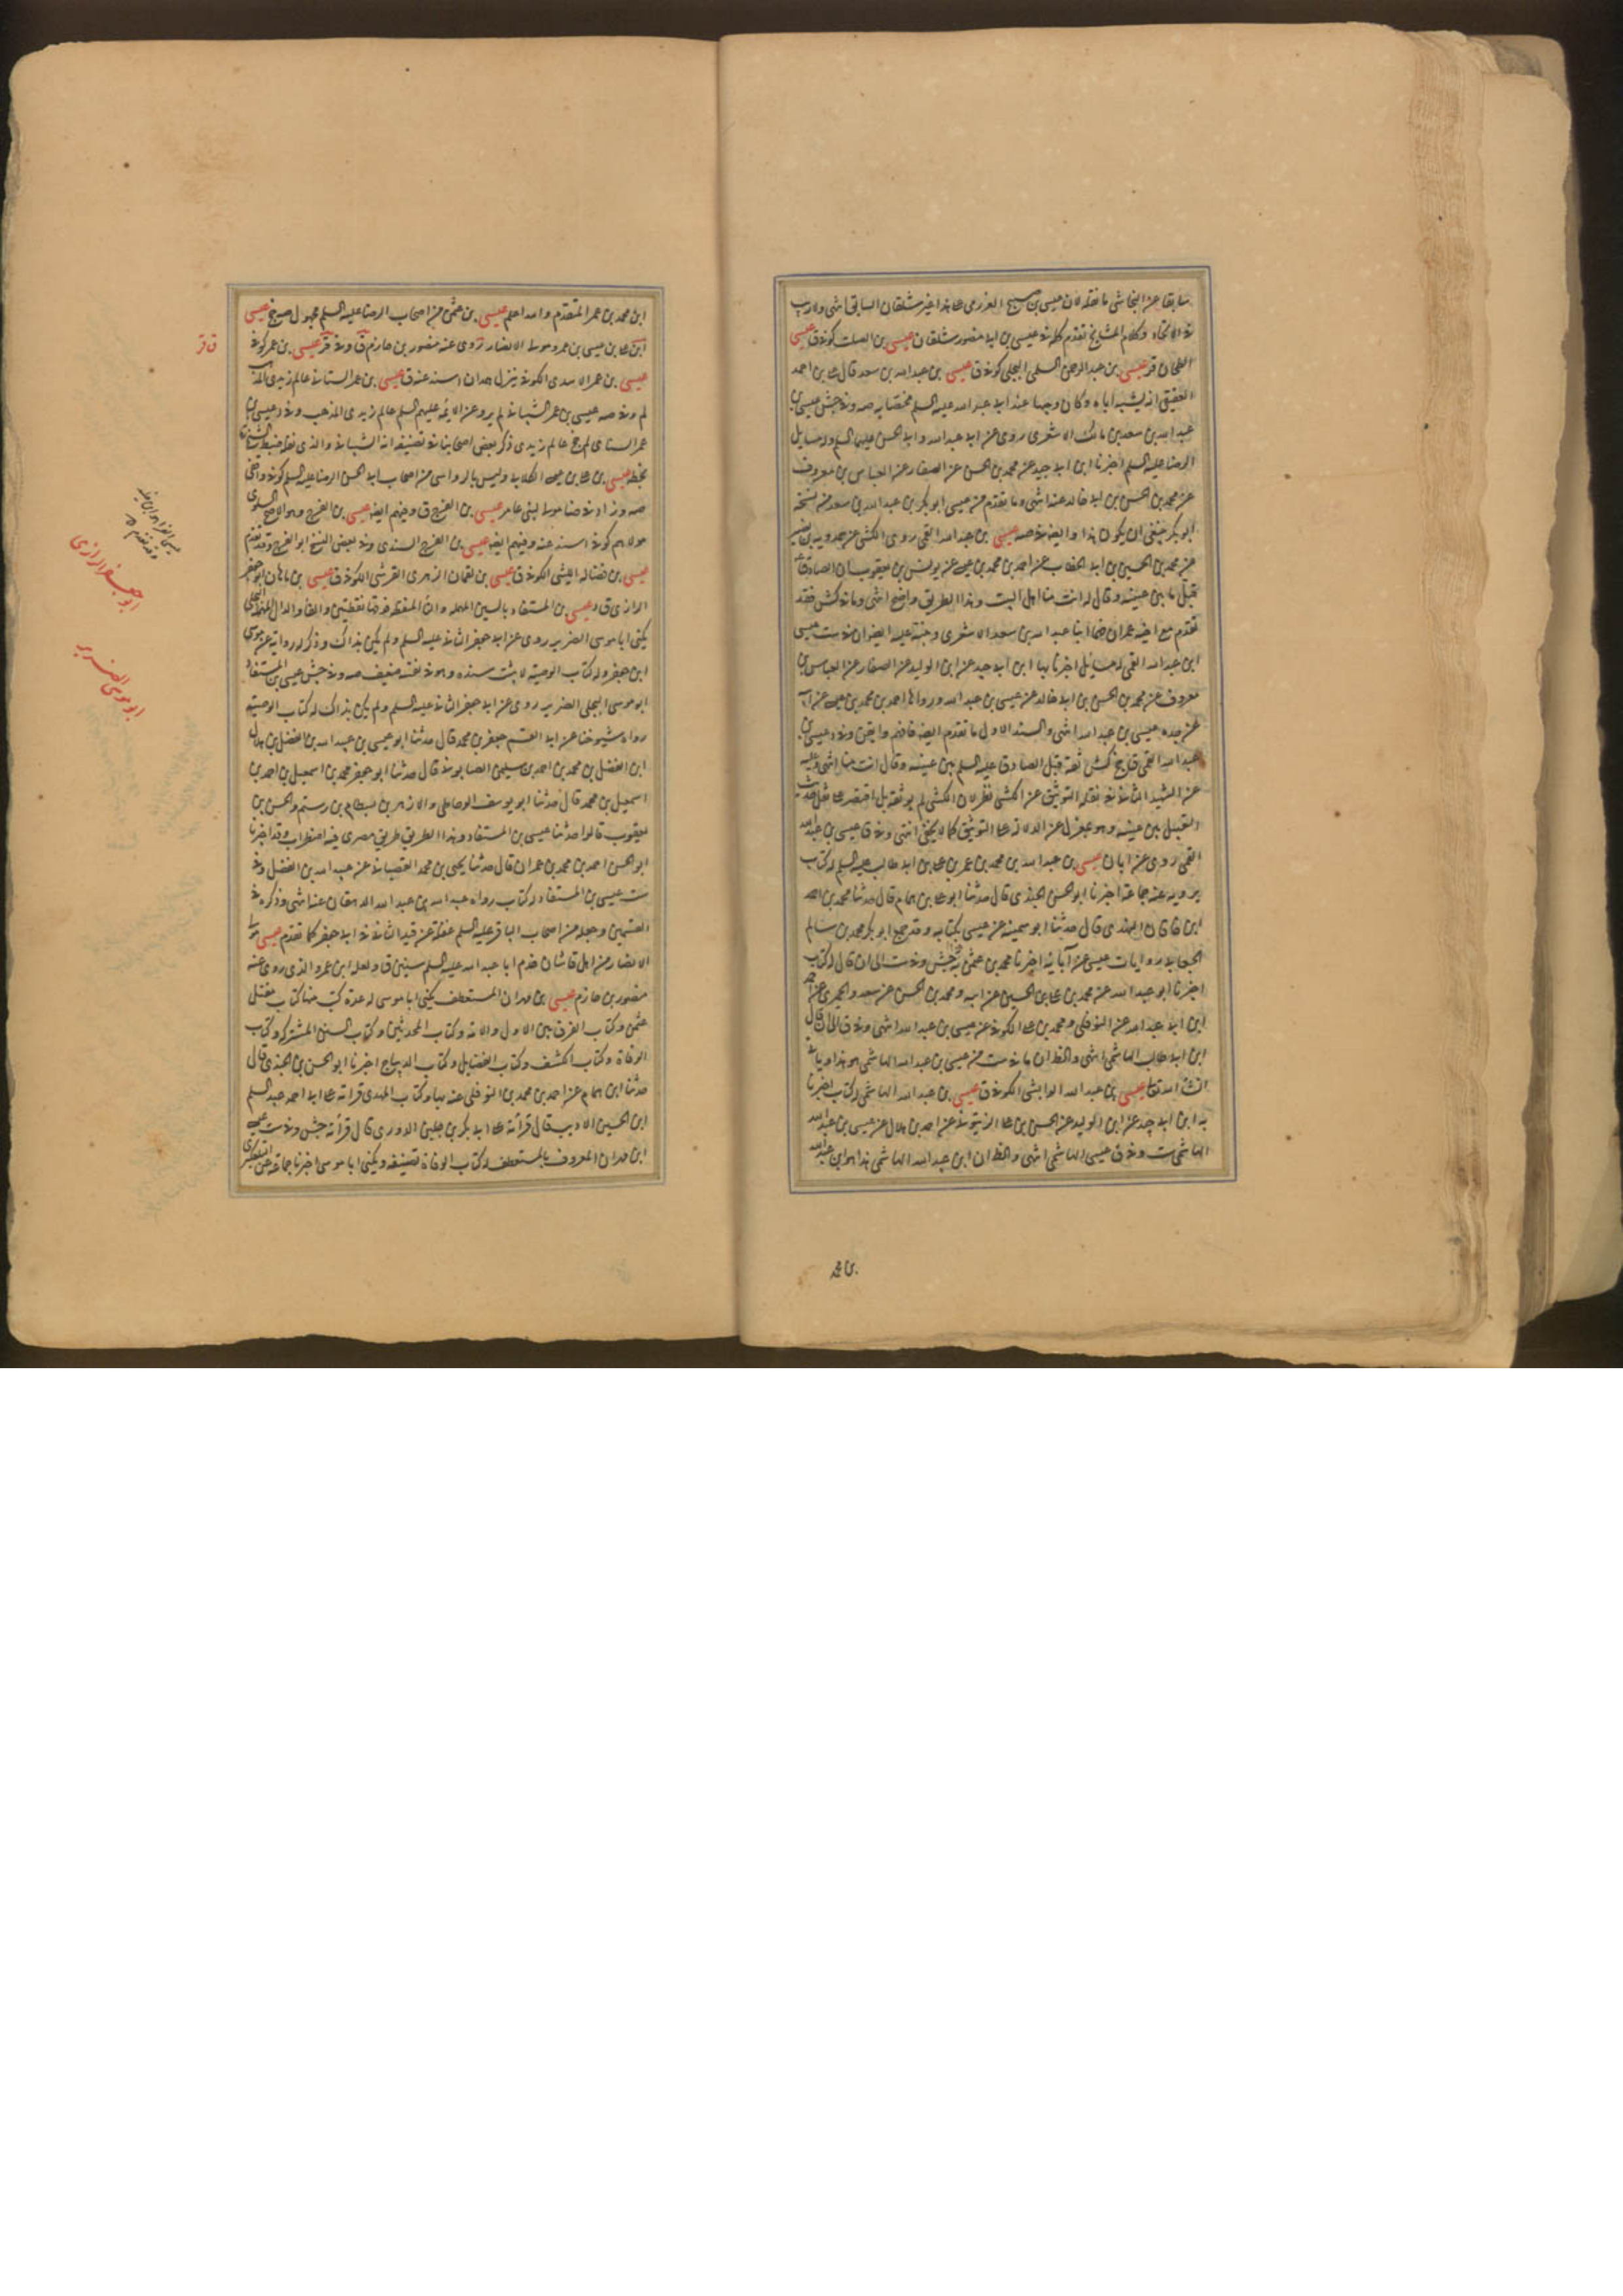 سابقا عن النجاشى ما نقله لان عيسى بن صبيح العرزمى على هذا غير شلقان السابق انتهى ولا ريب
فى الاتحاد وكلام المشايخ تقدم كله فى عيسى بن ابى منصور شلقان عيسى بن الصلت كوفى ق عيسى
الطحان قر عيسى بن عبد الرحمن السلمى البجلى كوفى ق عيسى بن عبد الله بن سعد قال على بن احمد
العقيقى انه يشبه اباه وكان وجها عند ابى عبد الله عليه السلم مختصا به صه وفى جش عيسى بن
عبد الله بن سعد بن مالك الاشعرى روى عن ابى عبد الله وابى الحسن عليهما السلم وله مسايل
الرضا عليه السلم اخبرنا ابن ابى جيد عن محمد بن الحسن عن الصفار عن العباس بن معروف
عن محمد بن الحسن بن ابى خالد عنه انتهى وما تقدم من عيسى ابو بكر بن عبد الله بن سعد فى نسخة
ابو بكر فينبغى ان يكون هذا وايضا فى صه عيسى بن عبد الله القمى روى الكشى عن حمدويه بن نصير
عن محمد بن الحسين بن ابى الخطاب عن احمد بن محمد بن عيسى عن يونس بن يعقوب ان الصادق
قبل ما بين عينيه وقال له انت منا اهل البيت وهذا الطريق واضح انتهى وما فى كش فقد
تقدم مع اخيه عمران ضما ابنا عبد الله بن سعد الاشعرى وجنبة عليه الرضوان فى ست عيسى
ابن عبد الله القمى له مسايل اخبرنا بها ابن ابى جيد عن ابن الوليد عن الصفار عن العباس بن
معروف عن محمد بن الحسن بن ابى خالد عن عيسى بن عبد الله ورواها احمد بن محمد بن عيسى عن ابيه
عن جده عيسى بن عبد الله انتهى والسند الاول ما تقدم ايضا فافهم وايقن وفى د عيسى بن
عبد الله القمى ق جخ كش ثقة قبل الصادق عليه السلم بين عينيه وقال انت منا انتهى وعليه
عن الشهيد الثانى فى نقله التوثيق عن الكشى نظر لان الكشى لم يوثقه بل اقتصر على نقل حديث
التقبيل بين عينيه وهو بمعزل عن الدلالة على التوثيق كما لا يخفى انتهى وفى ق عيسى بن عبد الله
القمى روى عن ابان عيسى بن عبد الله بن محمد بن عمر بن على بن ابى طالب عليه السلم له كتاب
يرويه عنه جماعة اخبرنا ابو الحسن الجندى قال حدثنا ابو على بن همام قال حدثنا محمد بن احمد
ابن خاقان النهدى قال حدثنا ابو سمينة عن عيسى بكتابه وقد جمع ابو بكر محمد بن سالم
الجعابى روايات عيسى عن آبائه اخبرنا محمد بن عثمن به جش وفى ست الى ان قال له كتاب
اخبرنا ابو عبد الله عن محمد بن على بن الحسين عن ابيه ومحمد بن الحسن عن سعد والحميرى عن احمد
ابن ابى عبد الله عن النوفلى ومحمد بن على الكوفى عن عيسى بن عبد الله انتهى وفى ق الى ان قال
ابن ابى طالب الهاشمى انتهى والظ ان ما فى ست من عيسى بن عبد الله الهاشمى هو هذا وياتى
انشاء الله تعالى عيسى بن عبد الله الوابشى الكوفى ق عيسى بن عبد الله الهاشمى له كتاب اخبرنا
به ابن ابى جيد عن ابن الوليد عن الحسن بن على الزيتونى عن احمد بن هلال عن عيسى بن عبد الله
الهاشمى ست وفى ق عيسى الهاشمى انتهى والظ ان ابن عبد الله الهاشمى هذا هو ابن عبد الله
بن محمد
ابن محمد بن عمر المتقدم والله اعلم عيسى بن عثمن من اصحاب الرضا عليه السلم مجهول صه جخ عيسى
ابن على بن عيسى بن عمر ومولى الانصار تروى عنه منصور بن حازم ق وفى قر عيسى بن عمر كوفى
عيسى بن عمر الاسدى الكوفى ينزل همدان اسند عنه ق عيسى بن عمر السنانى عالم زيدى المذهب
لم وفى صه عيسى بن عمر الشيبانى لم يرو عن الائمة عليهم السلم عالم زيدى المذهب وفى د عيسى بن
عمر السنانى لم جخ عالم زيدى ذكر بعض اصحابنا فى تصنيفه انه الشيبانى والذى نقله ضبط الشيخ
بخطه عيسى بن على بن عيسى الكلابى وليس بالرواسى من اصحاب ابى الحسن الرضا عليه السلم كوفى واقفى
صه وزاد فى ضا مولى لبنى عامر عيسى بن الفرج ق وفيهم ايضا عيسى بن الفرج وهو الاصح السلولى
مولاهم كوفى اسند عنه وفيهم ايضا عيسى بن الفرج السندى وفى بعض النسخ ابو الفرج وقد تقدم
عيسى بن فضاله الليثى الكوفى ق عيسى بن لقمان الزهرى القرشى الكوفى ق عيسى بن ماهان ابو جعفر
الرازى ق د عيسى بن المستفاد بالسين المهمله والتاء المنقطة فوقها نقطتين والفاء والدال المهملة البجلى
يكنى ابا موسى الضرير روى عن ابى جعفر الثانى عليه السلم ولم يكن بذاك وذكر له رواية عن موسى
ابن جعفر وله كتاب الوصية لا يثبت سنده وهو فى نفسه ضعيف صه وفى جش عيسى بن المستفاد
ابو موسى البجلى الضرير روى عن ابى جعفر الثانى عليه السلم ولم يكن بذاك له كتاب الوصية
رواه شيوخنا عن ابى القسم جعفر بن محمد قال حدثنا ابو عيسى بن عبيد الله بن الفضل بن هلال
ابن الفضل بن محمد بن احمد بن سليمن الصابونى قال حدثنا ابو جعفر محمد بن اسمعيل بن احمد بن
اسمعيل بن محمد قال حدثنا ابو يوسف الوحاظى والازهر بن بسطام بن رستم والحسن بن
يعقوب قالوا حدثنا عيسى بن المستفاد وهذا الطريق طريق مصرى فيه اضطراب وقد اخبرنا
ابو الحسن احمد بن محمد بن عمران قال حدثنا يحيى بن محمد القصبانى عن عبيد الله بن الفضل وفى
ست عيسى بن المستفاد له كتاب رواه عبيد الله بن عبد الله الدهقان عنه انتهى وذكره فى
القسمين وجعله من اصحاب الباقر عليه السلم غفلة عن قيد الثانى فى ابى جعفر كما تقدم عيسى مولى
الانصار من اهل قاشان خدم ابا عبد الله عليه السلم سنتين ق ولعله ابن عمرو الذى روى عنه
منصور بن حازم عيسى بن مهران المستعطف يكنى ابا موسى له عدة كتب منها كتاب مقتل
عثمن وكتاب الفرق بين الآل والامة وكتاب المحدثين وكتاب السنن المشتركه وكتاب
الوفاة وكتاب الكشف وكتاب الفضايل وكتاب الديباج اخبرنا ابو الحسن بن الجندى قال
حدثنا ابن همام عن احمد بن محمد بن النوفلى عنه بها وكتاب المهدى قراته على ابى احمد عبد السلم
ابن الحسين الاديب قال قرأته على ابى بكر بن جلين الدورى قال قرأته جش وفى ست عيسى
ابن مهران المعروف بالمستعطف له كتاب الوفاة تصنيفه ويكنى ابا موسى اخبرنا جماعة عن التلعكبرى
ق قر
ابو جعفر الرازى
ابو موسى الضرير